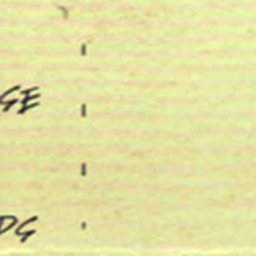 GE
DG